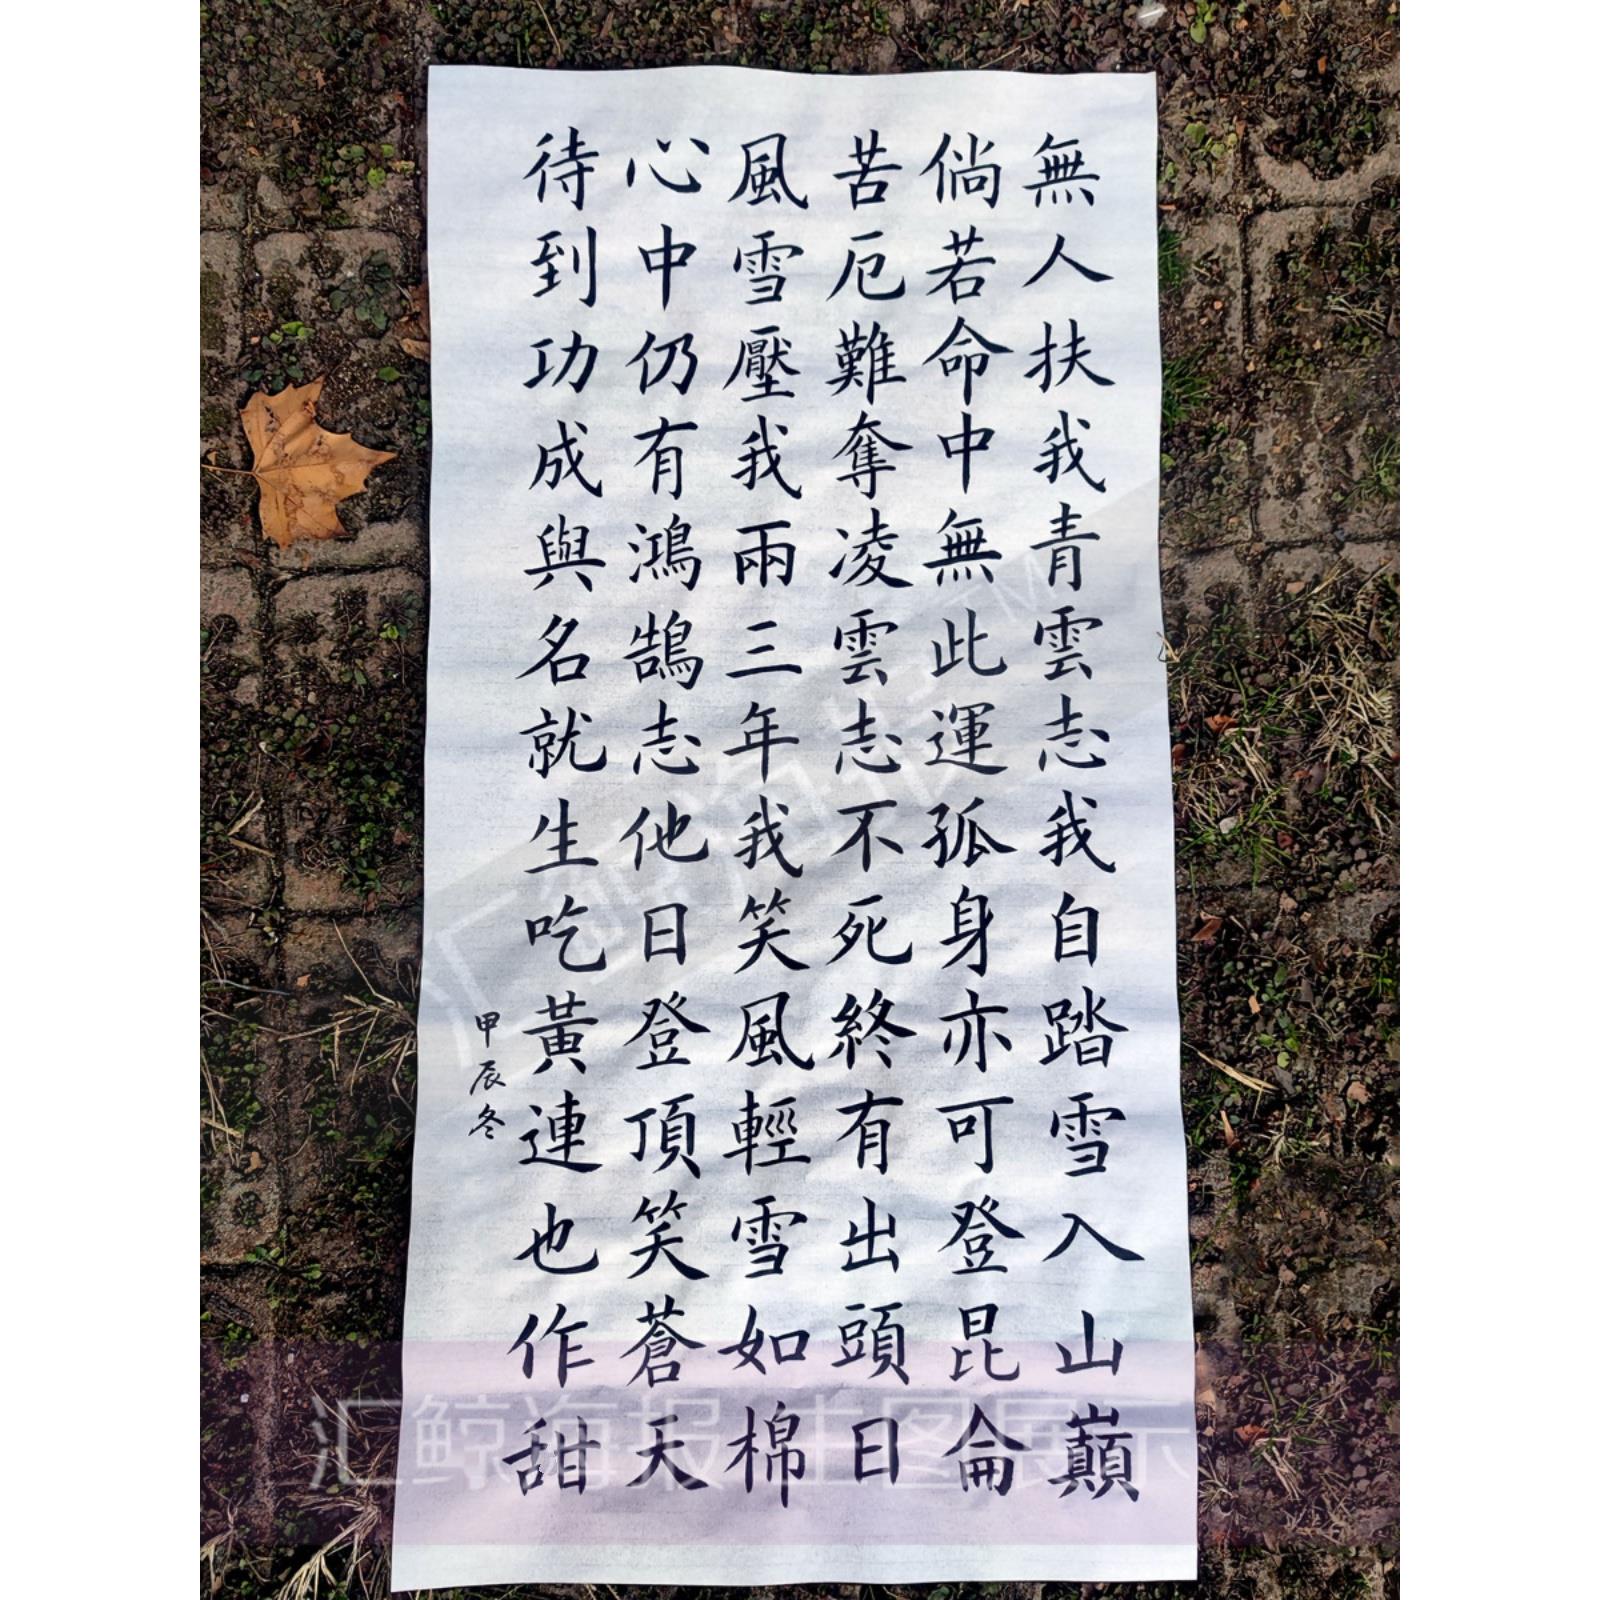 無人扶我青雲志我自踏雪入山巔
倘若命中無此運孤身亦可登昆侖
苦厄難奪凌雲志不死終有出頭日
風雪壓我兩三年我笑風輕雪如棉
心中仍有鴻鵠志他日登頂笑蒼天
待到功成與名就生吃黃連也作甜
甲辰冬
汇鲸海报
TM
汇鲸海报 上图展示